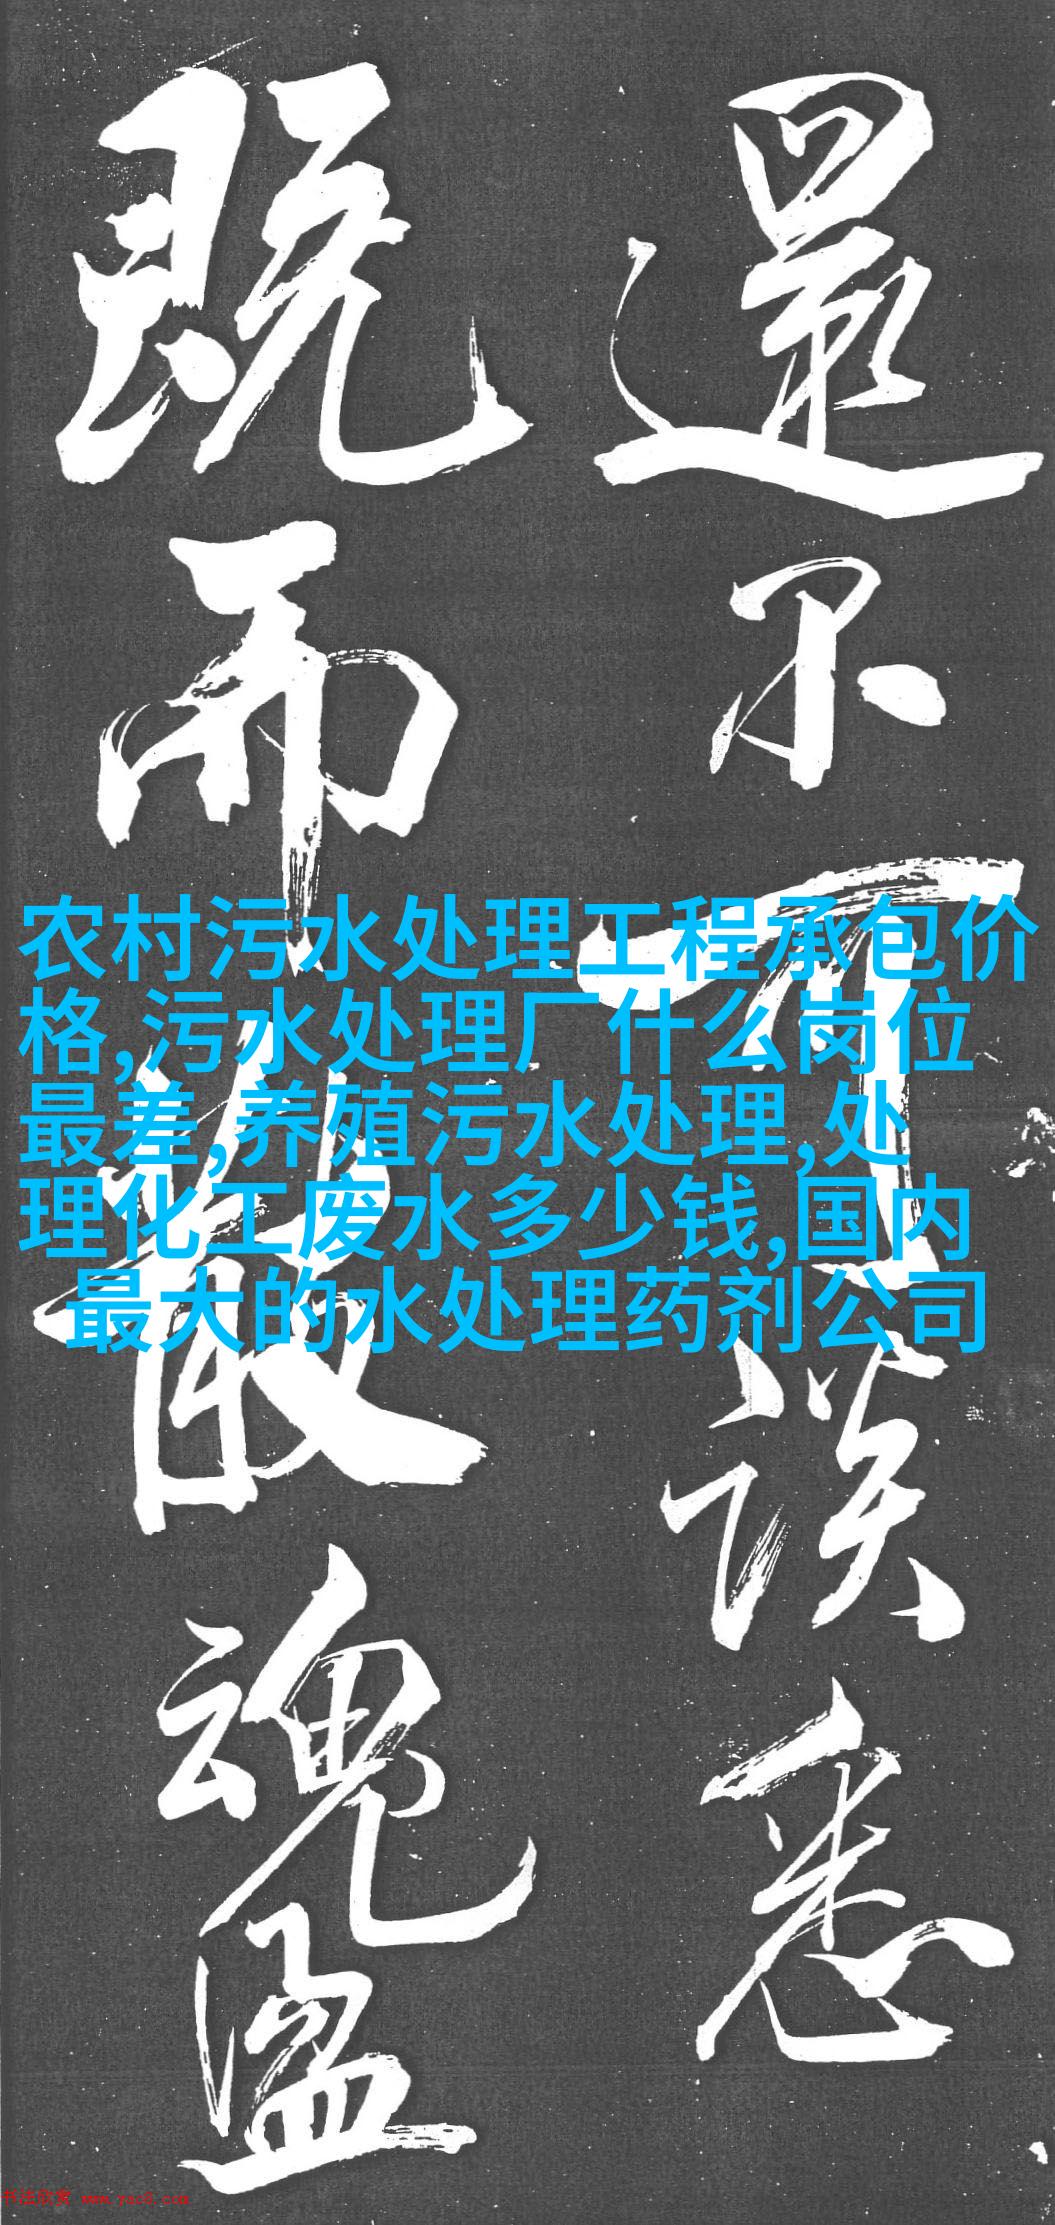 還不可談悉
既而散魂盪
农村污水处理工程承包价
格,污水处理厂什么岗位
最差,养殖污水处理,处
理化工废水多少钱,国内
最大的水处理药剂公司
书法欣赏 www.yac8.com